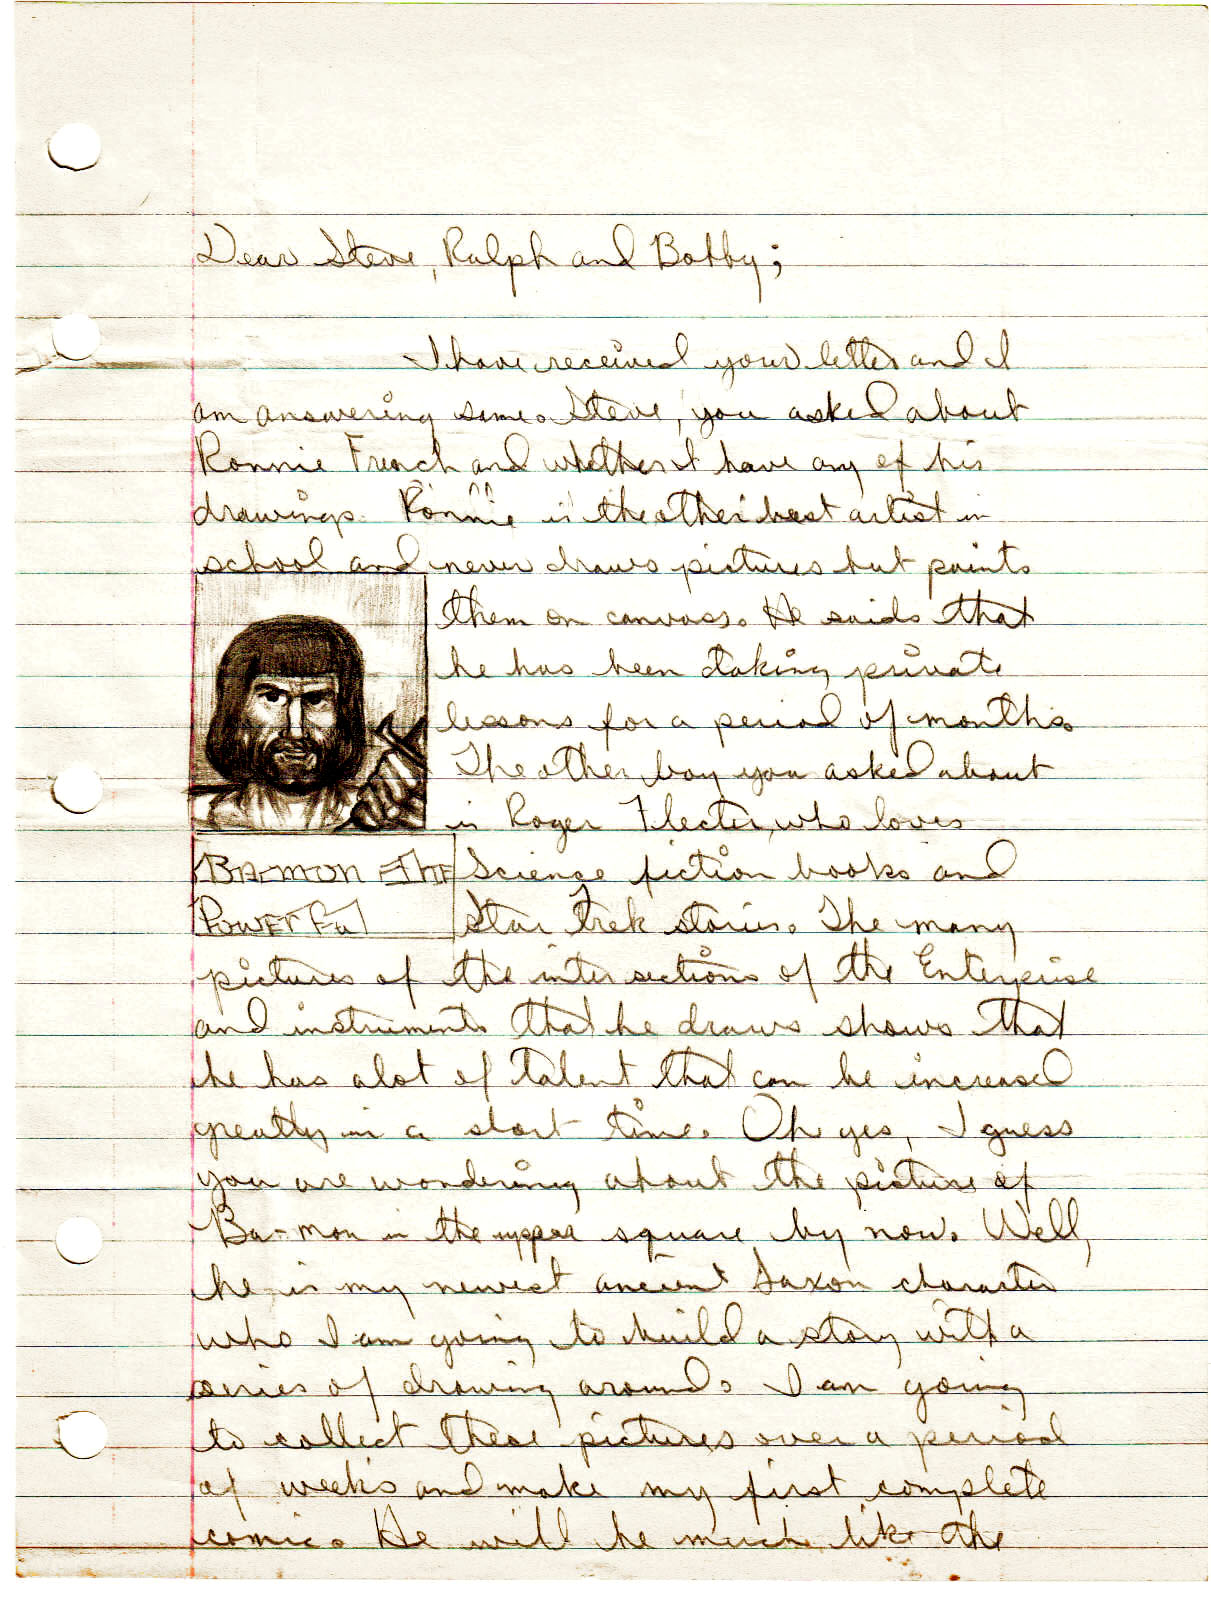 Dear Steve, Ralph and Bobby;
I have received your letter and I
am answering same. Steve, you asked about
Ronnie French and whether I have any of his
drawings. Ronnie is the other best artist in
school and never draws pictures but paints
them on canvass. He saids that
he has been taking private
lessons for a period of months.
The other boy you asked about
is Roger Flecter, who loves
Science fiction books and
Star Trek stories. The many
BA-MON THE
POWERFul
pictures of the inter sections of the Enterprise
and instruments that he draws shows that
he has alot of talent that can be increased
greatly in a short time. Oh yes, I guess
you are wondering about the picture of
Ba-mon in the upper square by now. Well,
he is my newest ancient Saxon character
who I am going to build a story with a
series of drawing around. I am going
to collect these pictures over a period
of weeks and make my first complete
comic. He will be much like the